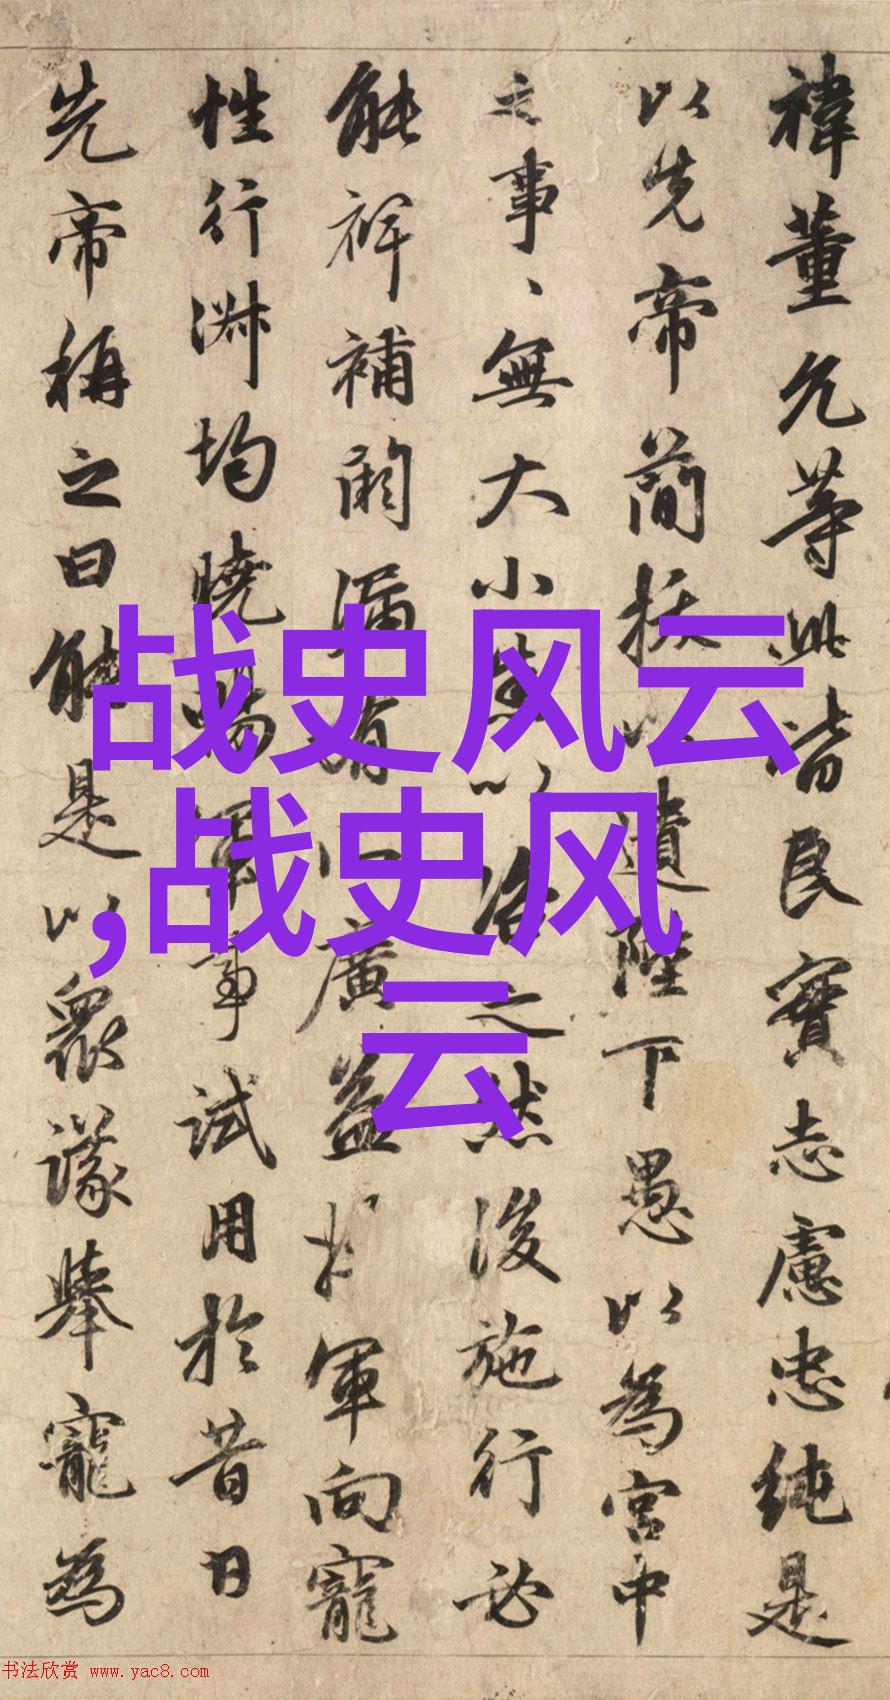 禕董允等此皆良實志慮忠純是
以先帝簡拔以遺陛下愚以為宮中
之事、、無大小悉以咨之然後施行必
能裨補闕漏有廣益軍向寵
性行淑均曉暢軍事試用於昔日
先帝稱之曰能是以衆議舉寵為
战史风云
,战史风
云
书法欣赏 www.yac8.com